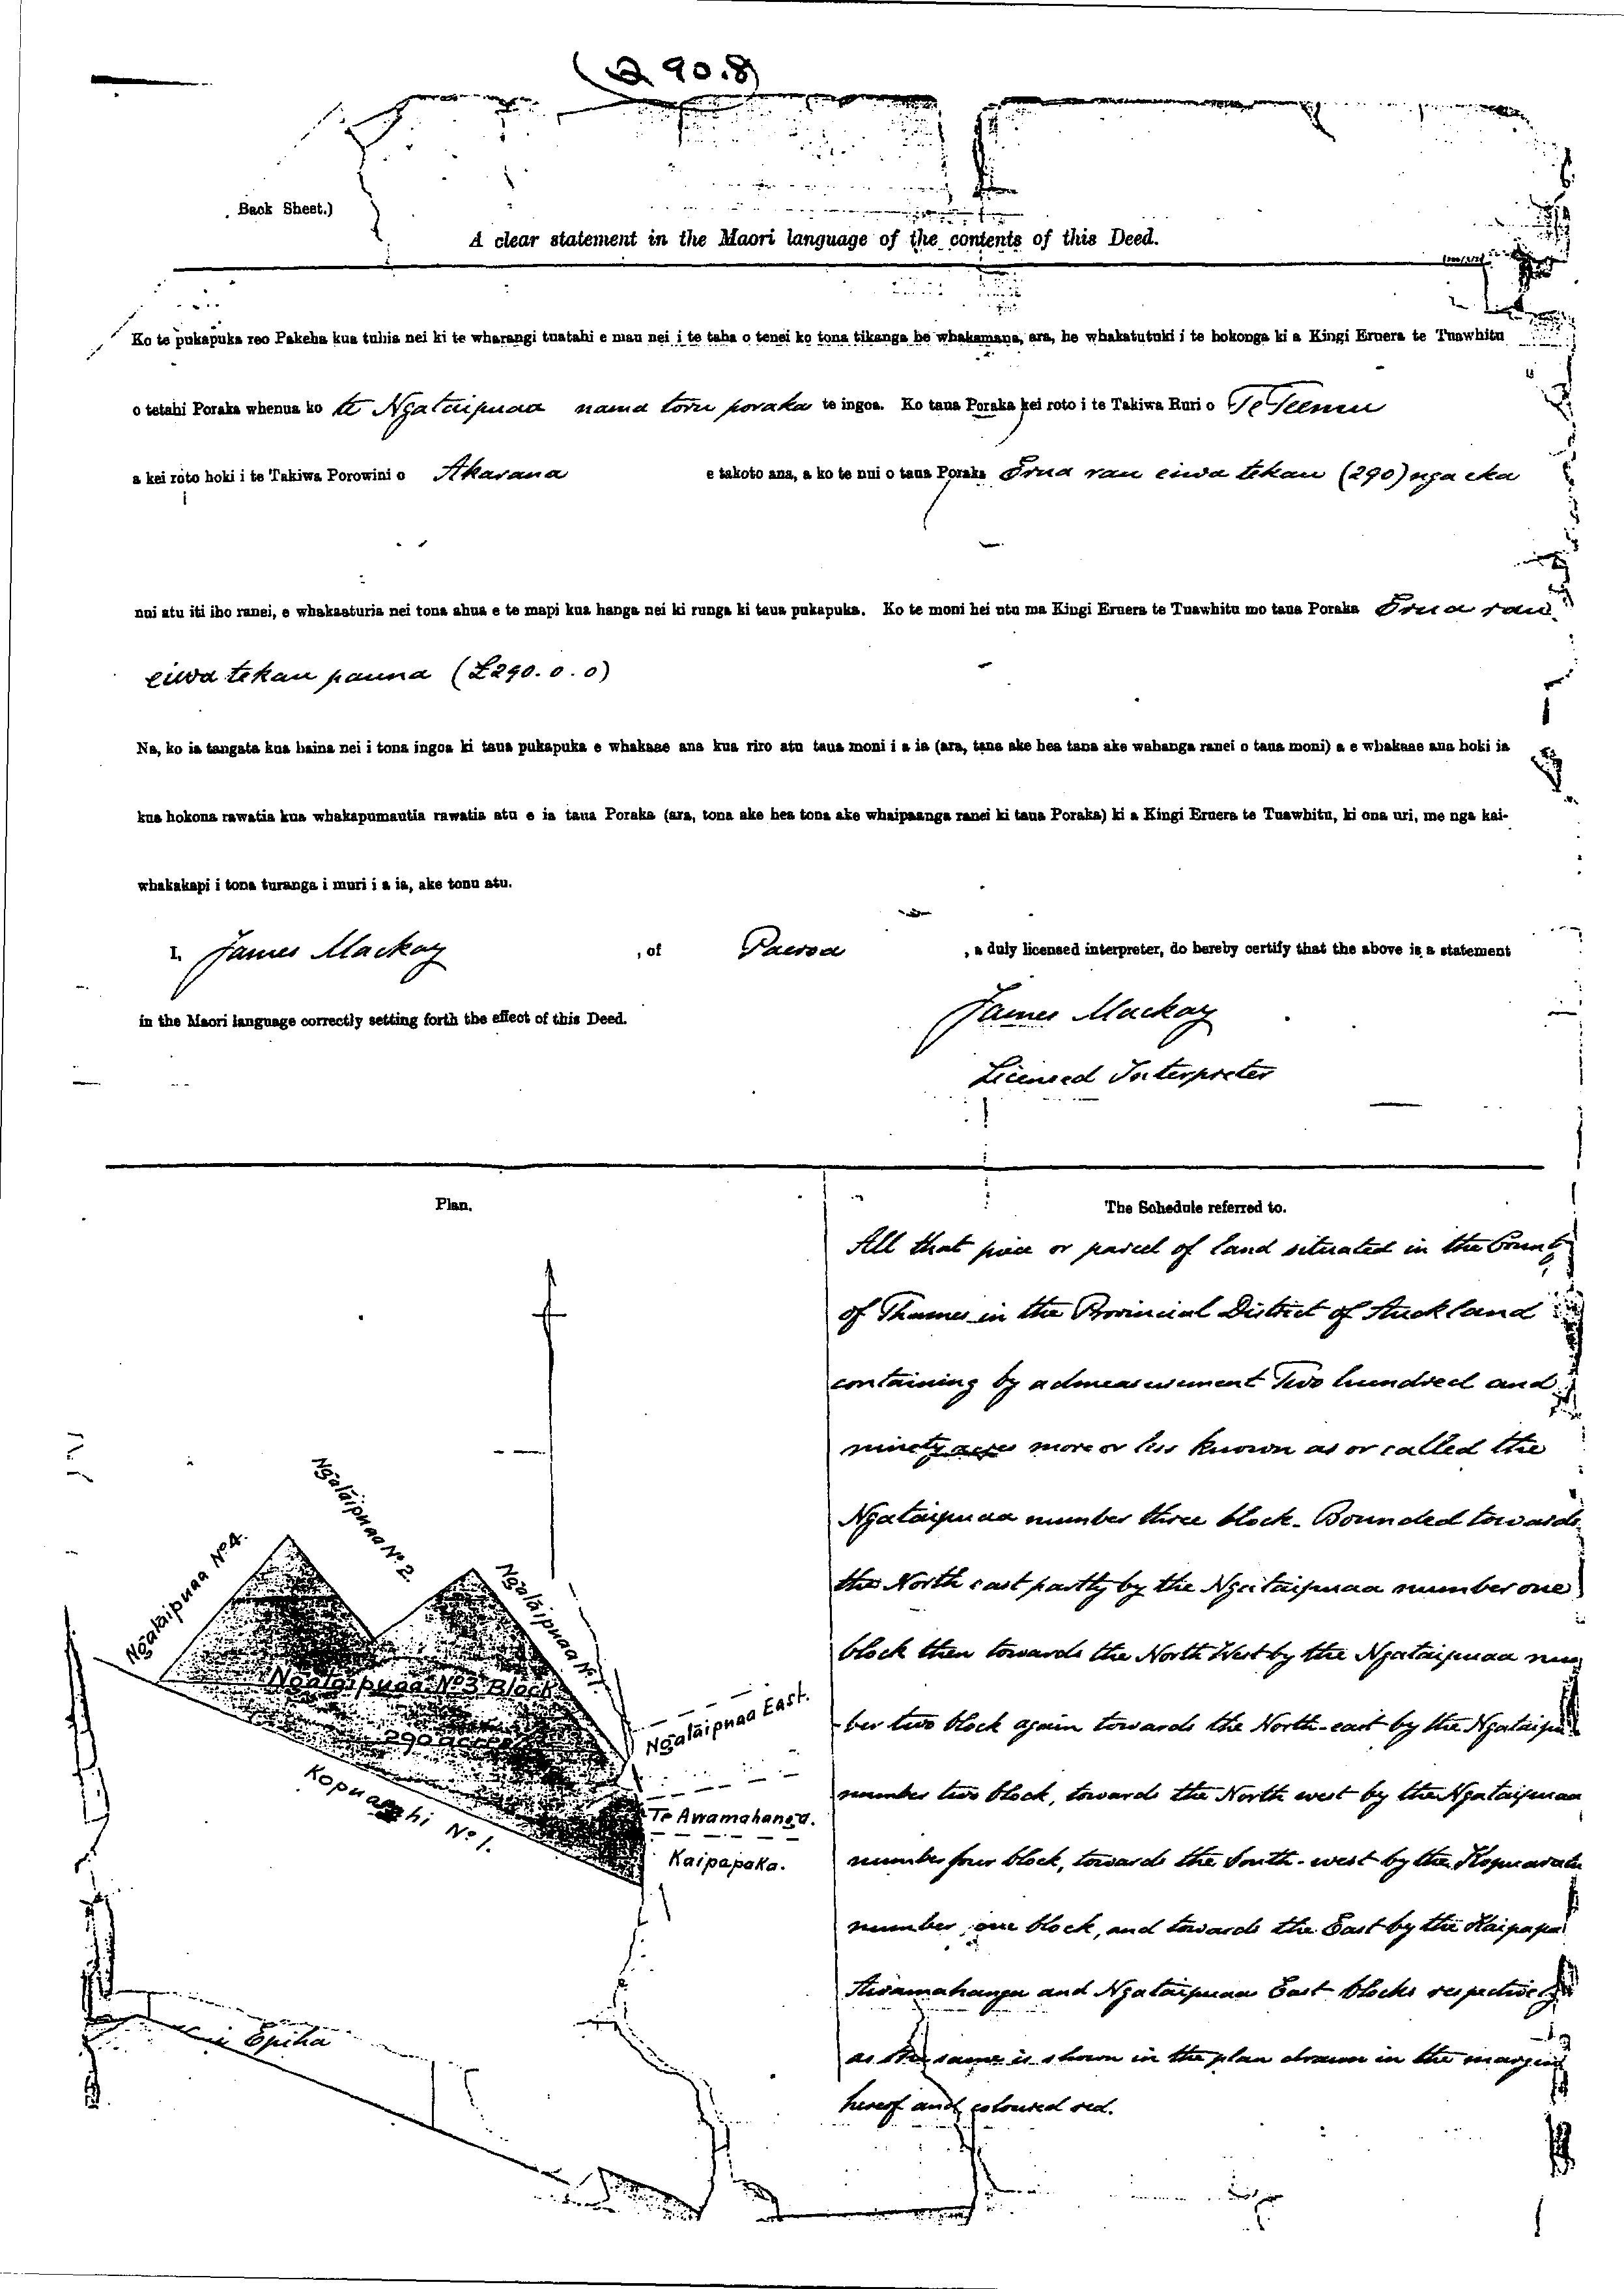 (Q 90.8)
Back Sheet.)
A clear statement in the Maori language of the contents of this Deed.
Ko te pukapuka reo Pakeha kua tuhia nei ki te wharangi tuatahi e mau nei i te taha o tenei ko tona tikanga he whakamana, ara, he whakatutuki i te hokonga ki a Kingi Eruera te Tuawhitu
o tetahi Poraka whenua ko te Ngataipuaa nama toru poraka te ingoa. Ko taua Poraka kei roto i te Takiwa Ruri o
a kei roto hoki i te Takiwa Porowini o Akarana e takoto ana, a ko te nui o taua Poraka Erua rau eiwa tekau (290) nga eka
nui atu iti iho ranei, e whakaaturia nei tona ahua e te mapi kua hanga nei ki runga ki taua pukapuka. Ko te moni hei utu ma Kingi Eruera te Tuawhitu mo taua Poraka Erua rau
eiwa tekau pauna (£290. 0. 0)
Na, ko ia tangata kua haina nei i tona ingoa ki taua pukapuka e whakaae ana kua riro atu taua moni i a ia (ara, tana ake hea tana ake wahanga ranei o taua moni) a e whakaae ana hoki ia
kua hokona rawatia kua whakapumautia rawatia atu e ia taua Poraka (ara, tona ake hea tona ake whaipaanga ranei ki taua Poraka) ki a Kingi Eruera te Tuawhitu, ki ona uri, me nga kai-
whakakapi i tona turanga i muri i a ia, ake tonu atu.
I, James Mackay, of Paeroa, a duly licensed interpreter, do hereby certify that the above is a statement
in the Maori language correctly setting forth the effect of this Deed.
James Mackay
Licensed Interpreter
Plan.
Ngataipuaa No. 4.
Ngataipuaa No. 2.
Ngataipuaa No. 1.
Ngataipuaa No 3 Block
290 acres
Ngataipuaa East.
Te Awamahanga.
Kaipapaka.
No 1.
Epiha
The Schedule referred to.
All that piece or parcel of land situated in the County
of Thames in the Provincial District of Auckland
containing by admeasurement Two hundred and
ninety acres more or less known as or called the
Ngataipuaa number three block. Bounded towards
the North east partly by the Ngataipuaa number one
block then towards the North West by the Ngataipuaa num
-ber two block again towards the North-east by the
number two block, towards the North west by the Ngataipuaa
number four block, towards the South-west by the
number one block, and towards the East by the
Awamahanga and Ngataipuaa East blocks respectively
as the same is shown in the plan drawn in the margin
hereof and coloured red.